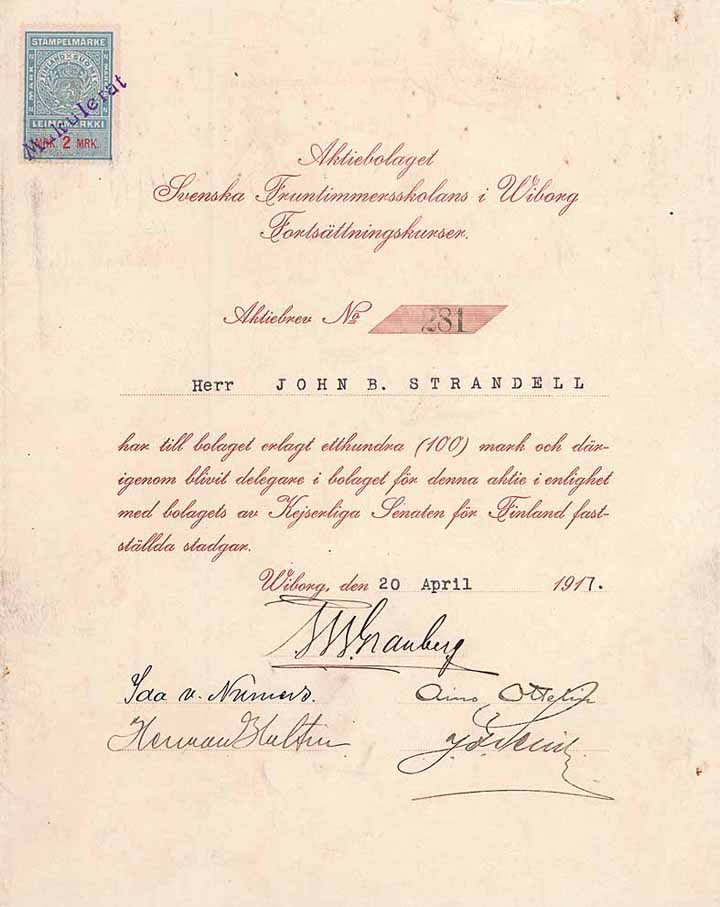 STÄMPELMÄRKE
FINLAND SUOMI
LEIMAMERKKI
MRK. 2 MRK.
Makulerat
Aktiebolaget
Svenska Fruntimmersskolans i Wiborg
Fortsättningskurser.
Aktiebrev No 281
Herr JOHN B. STRANDELL
har till bolaget erlagt etthundra (100) mark och där-
igenom blivit delegare i bolaget för denna aktie i enlighet
med bolagets av Kejserliga Senaten för Finland fast-
ställda stadgar.
Wiborg, den 20 April 1917.
Granberg
Ida v. Numers. Aino
Herman Hultin